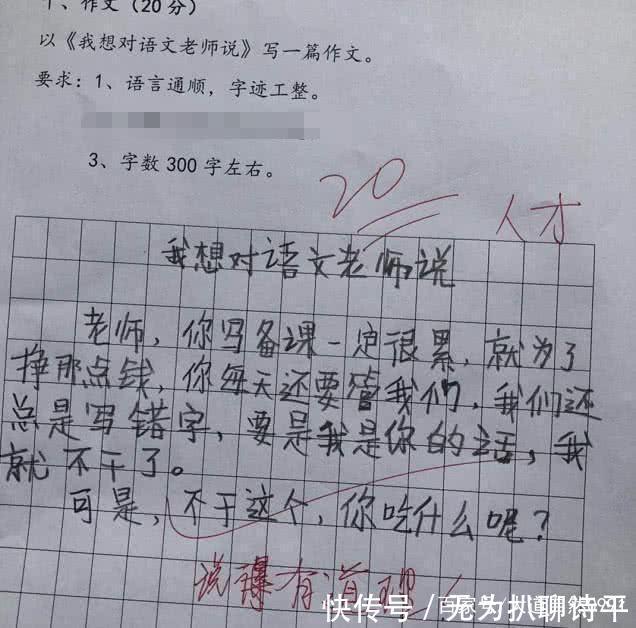 十、作文(20分)
以《我想对语文老师说》写一篇作文。
要求：1、语言通顺，字迹工整。
3、字数300字左右。
20
人才
我想对语文老师说
老师，你写备课一定很累，就为了
挣那点钱，你每天还要管我们，我们还
总是写错字，要是我是你的话，我
就不干了。
可是，不干这个，你吃什么呢？
说得有道理！
快传号／无为扒聊诗平
百家号